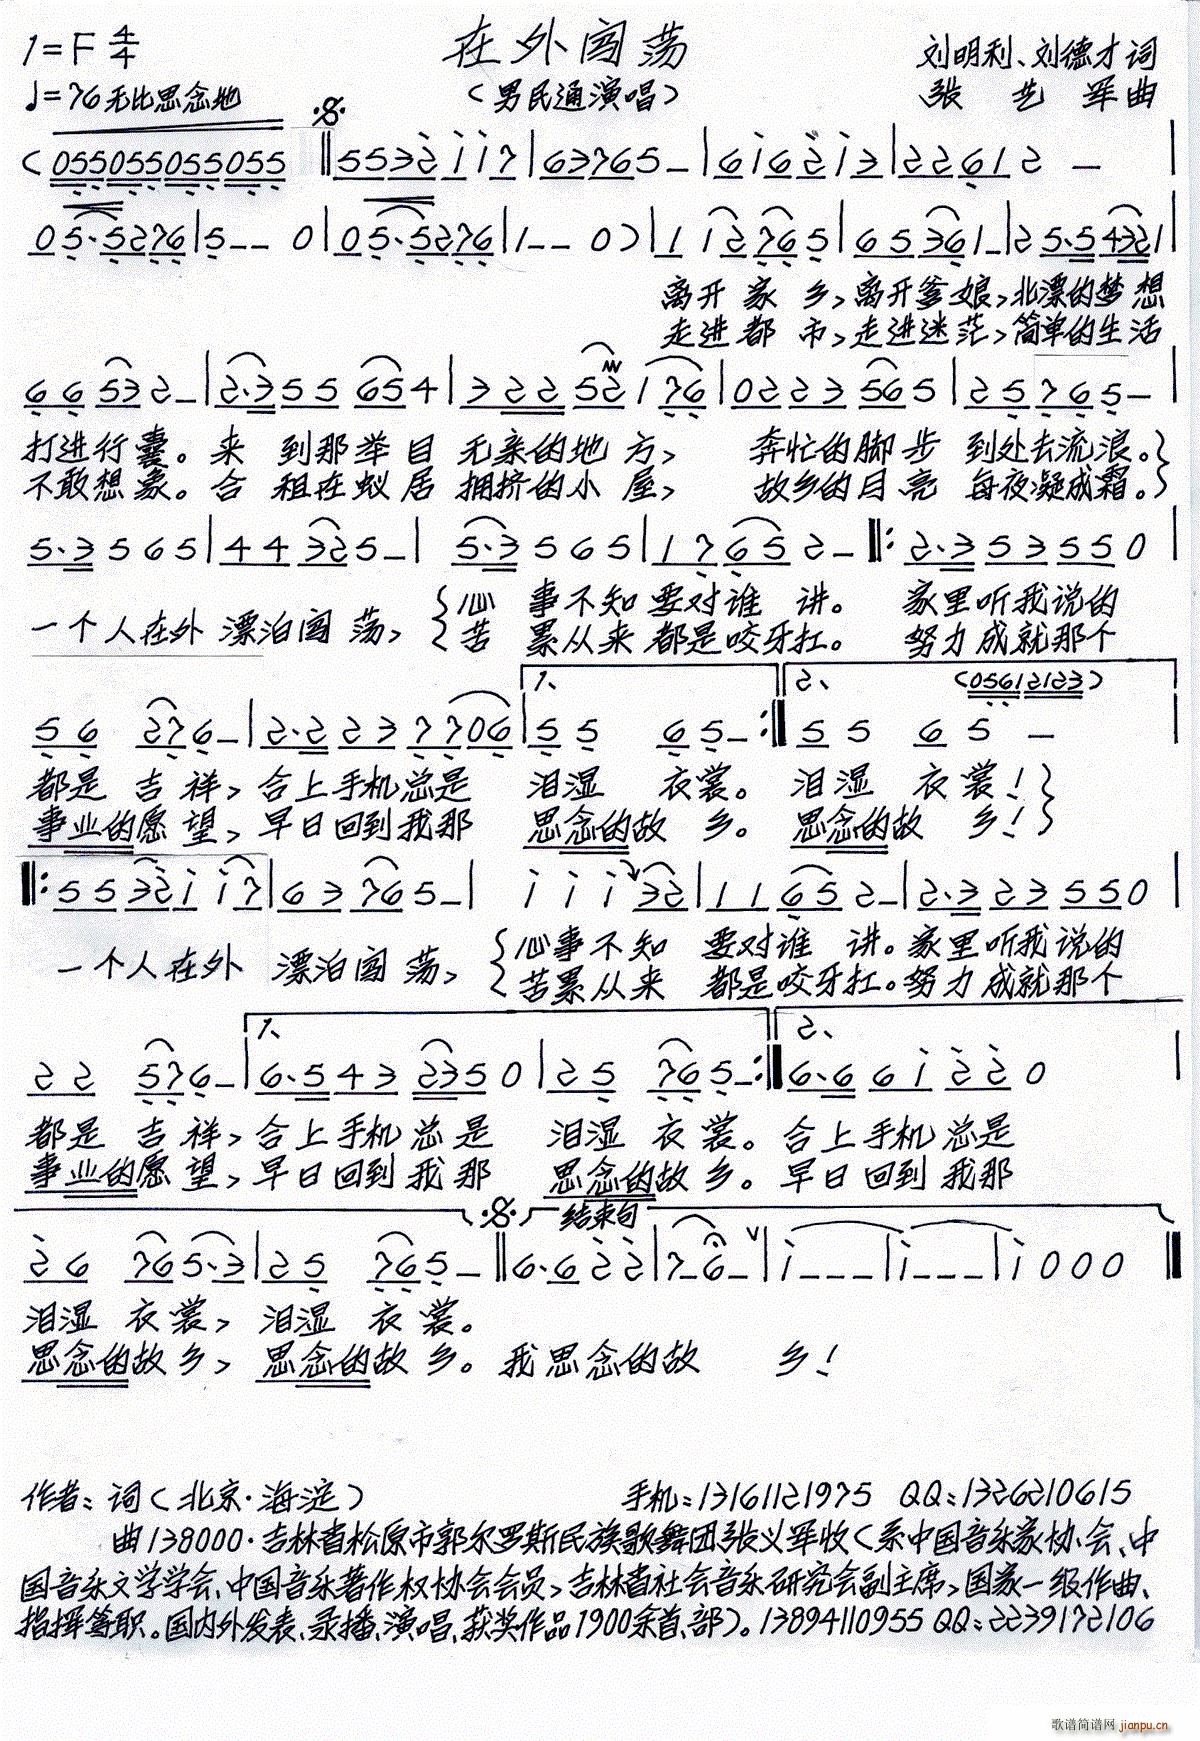 1=F 4/4
在外闯荡
刘明利、刘德才词
♩=76 无比思念地
(男民通演唱)
张艺军曲
(055055055055 ‖5532117|63765-|616213|22612-|
05·5276|5--0|05·5276|1--0)|112765|65361-|25·54321|
离开家乡,离开爹娘,北漂的梦想
走进都市,走进迷茫,简单的生活
66532-|2·355654|32252176|0223565|25765-|
打进行囊。来到那举目无亲的地方, 奔忙的脚步到处去流浪。
不敢想象。合租在蚁居拥挤的小屋, 故乡的月亮每夜凝成霜。
5·3565|44325-|5·3565|17652-‖:2·353550|
一个人在外漂泊闯荡,
心事不知要对谁讲。 家里听我说的
苦累从来都是咬牙扛。 努力成就那个
1、 2、 (05612123)
56276-|2·2237706|5565-:‖5565-|
都是吉祥,合上手机总是泪湿衣裳。泪湿衣裳!
事业的愿望,早日回到我那思念的故乡。思念的故乡!
‖:5532117|63765-|11132|11652-|2·323550|
一个人在外漂泊闯荡,
心事不知要对谁讲。家里听我说的
苦累从来都是咬牙扛。努力成就那个
1、 2、
22576-|6·5432350|25765-:‖6·661220|
都是吉祥,合上手机总是泪湿衣裳。合上手机总是
事业的愿望,早日回到我那思念的故乡。早日回到我那
结束句
26765·3|25765-‖6·622|7-6-|1---|1---|1000‖
泪湿衣裳,泪湿衣裳。
思念的故乡,思念的故乡。我思念的故乡!
作者:词(北京·海淀) 手机:13161121975 QQ:1326210615
曲138000·吉林省松原市郭尔罗斯民族歌舞团张义军收(系中国音乐家协会、中
国音乐文学学会、中国音乐著作权协会会员,吉林省社会音乐研究会副主席,国家一级作曲、
指挥等职。国内外发表、录播、演唱、获奖作品1900余首、部)。13894110955 QQ:2239172106
歌谱简谱网 jianpu.cn